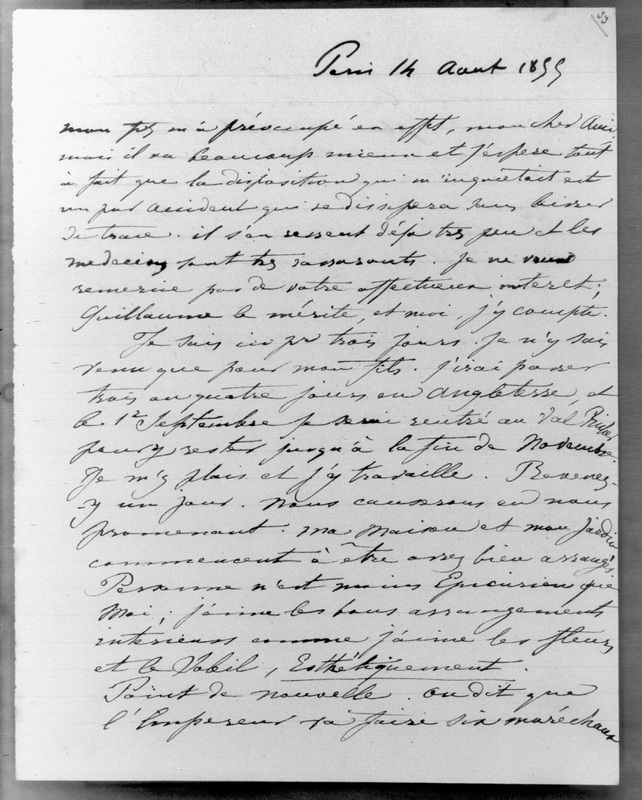 53
Paris 14 Aout 1855
mon fils m'a préoccupé en effet, mon cher Ami
mais il va beaucoup mieux et j'espère tout
à fait que la disposition qui m'inquiétait est
un pur accident qui se dissipera sans laisser
de trace. il s'en ressent déjà très peu et les
médecins sont très rassurants. Je ne vous
remercie pas de votre affectueux interet;
Guillaume le mérite, et moi, j'y compte.
Je suis ici pr trois jours. Je n'y suis
venu que pour mon fils. J'irai passer
trois ou quatre jours en Angleterre, et
le 1er Septembre je serai rentré au Val Richer
pour y rester jusqu'à la fin de Novembre.
Je m'y plais et j'y travaille. Revenez-
-y un jour. Nous causerons en nous
promenant. Ma maison et mon jardin
commencent à être assez bien arrangés.
Personne n'est moins Epicurien que
moi; j'aime les bons arrangements
interieurs comme j'aime les fleurs
et le Soleil, Esthétiquement.
Point de nouvelle. On dit que
l'Empereur va faire six maréchaux